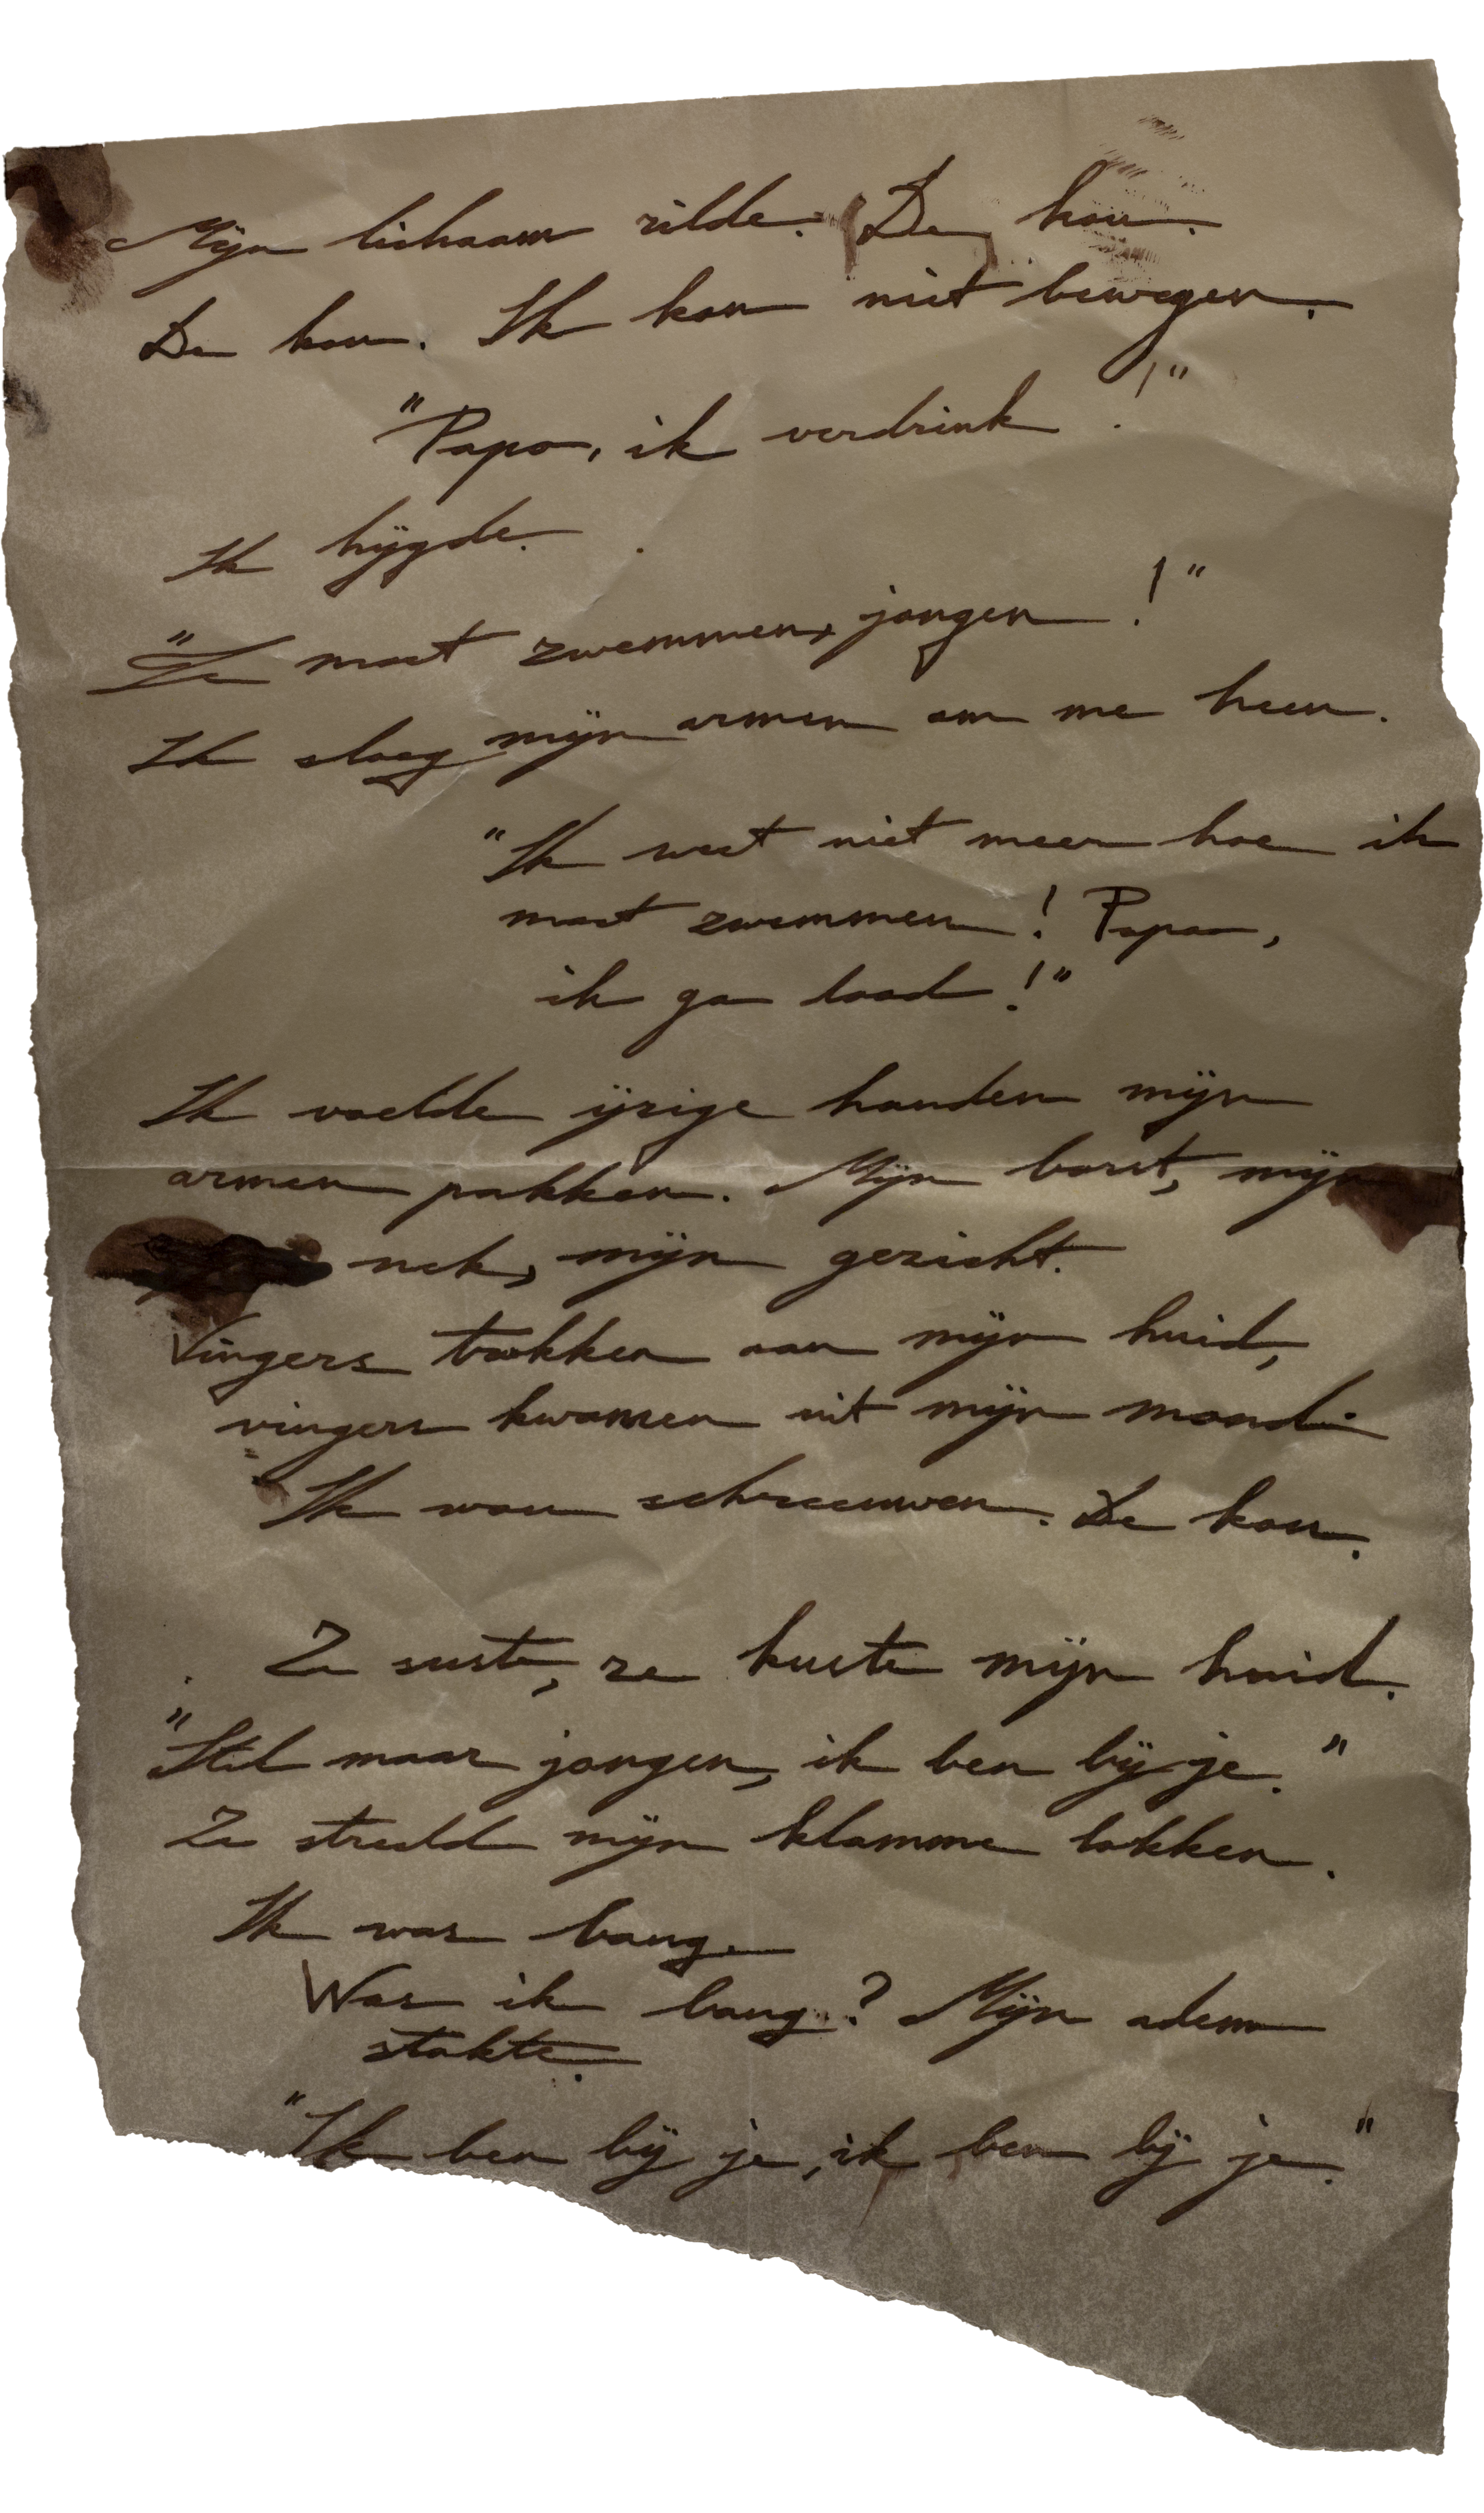 Mijn lichaam rilde. De kou.
De kou. Ik kon niet bewegen.
"Papa, ik verdrink!"
Ik hijgde.
"Je moet zwemmen, jongen!"
Ik sloeg mijn armen om me heen.
"Ik weet niet meer hoe ik
moet zwemmen! Papa,
ik ga dood!"
Ik voelde ijzige handen mijn
armen pakken. Mijn borst, mijn
nek, mijn gezicht.
Vingers trokken aan mijn huid,
vingers kwamen uit mijn mond.
Ik wou schreeuwen. De kou.
Ze suste, ze kuste mijn huid.
"Stil maar jongen, ik ben bij je."
Ze streeld mijn klamme lokken.
Ik was bang.
Was ik bang? Mijn adem
stokte.
"Ik ben bij je, ik ben bij je."